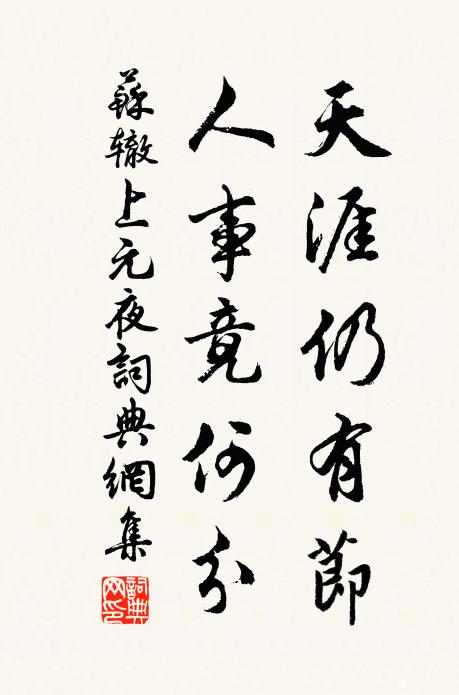 天涯仍有節
人事竟何分
蘇辙上元夜詞典網集
詞典网印